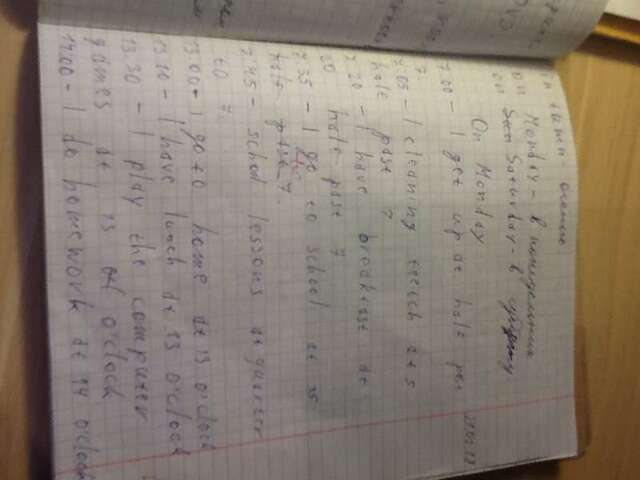 in autumn осенью
on Monday - в понедельник
on Saturday - в субботу
On Monday
7.00 - I get up at half past
7
7.05 - I cleaning teeth at 5
half past 7
7.20 - I have breakfast at
20 half past 7
7.35 - I go to school at 35
half past 7.
7.45 - school lessons at quarter
to 7.
13.00 - I go to home at 13 o'clock
13.10 - I have lunch at 13 o'clock
13.30 - I play the computer
games at 13 o'clock
14.00 - I do homework at 14 o'clock